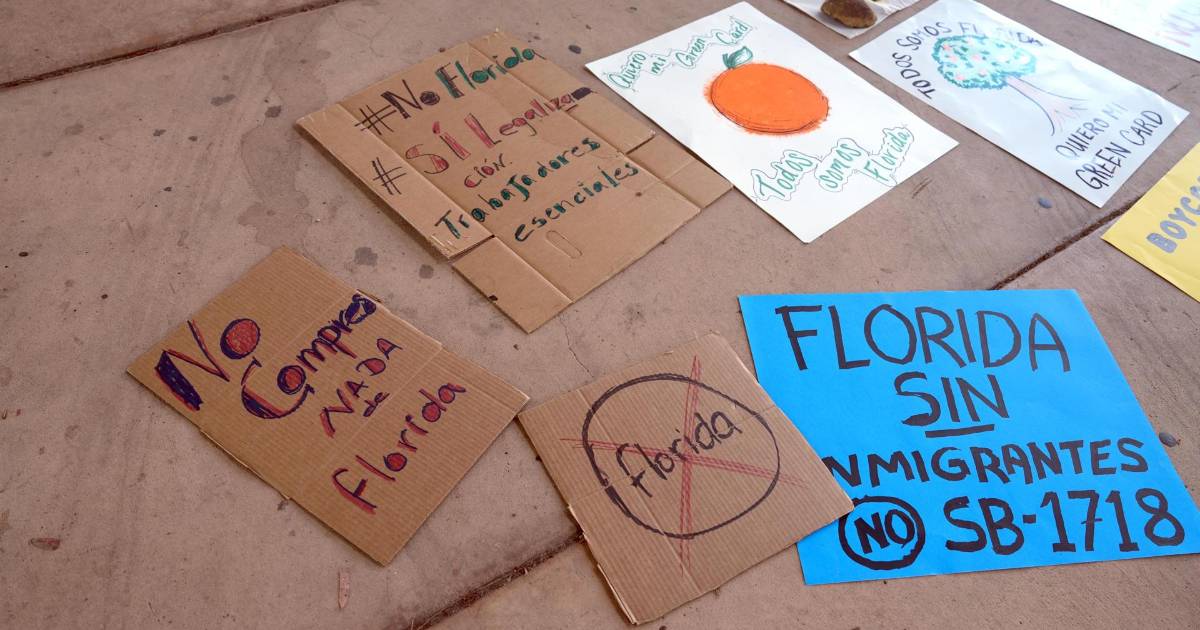 #No Florida
# SÍ Legaliza
ción.
Trabajadores
esenciales
Quiero
mi Green Card
Todos
somos
Florida
TODOS SOMOS FLORIDA
QUIERO MI
GREEN CARD
No
Compres
NADA
de
Florida
florida
FLORIDA
SIN
NMIGRANTES
NO SB-1718